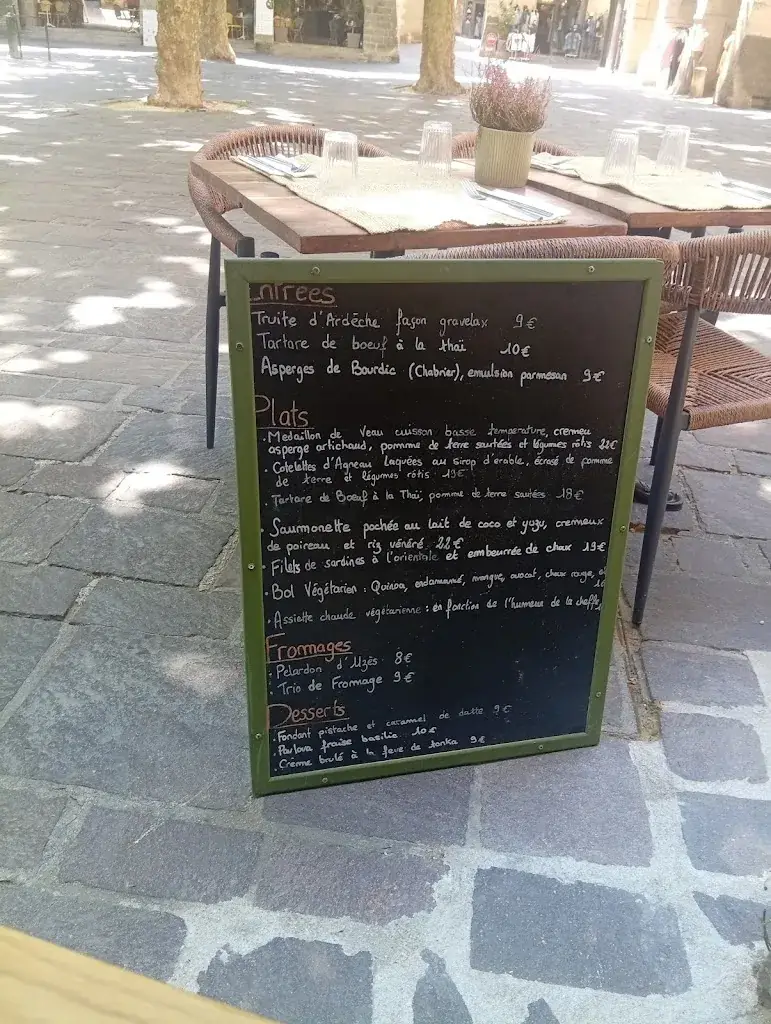 Entrées
Truite d'Ardèche façon gravelax 9€
Tartare de boeuf à la thaï 10€
Asperges de Bourdic (Chabrier), emulsion parmesan 9€
Plats
• Medaillon de Veau cuisson basse temperature, cremeu
asperge artichaud, pomme de terre sautées et légumes rôtis 22€
• Cotelettes d'Agneau laquées au sirop d'erable, écrasé de pomme
de terre et légumes rôtis 19€
• Tartare de Boeuf à la Thaï, pomme de terre sautées 18€
• Saumonette pochée au lait de coco et yuzu, cremeux
de poireau et riz vénéré 22€
• Filets de sardines à l'orientale et embeurrée de chou 19€
• Bol Végétarien : Quinoa, edamamé, mangue, avocat, choux rouge,
• Assiette chaude végétarienne : en fonction de l'humeur de la cheffe
Fromages
• Pelardon d'Uzès 8€
• Trio de Fromage 9€
Desserts
• Fondant pistache et caramel de datte 9€
• Pavlova fraise basilic 10€
• Crème brulé à la feve de tonka 9€